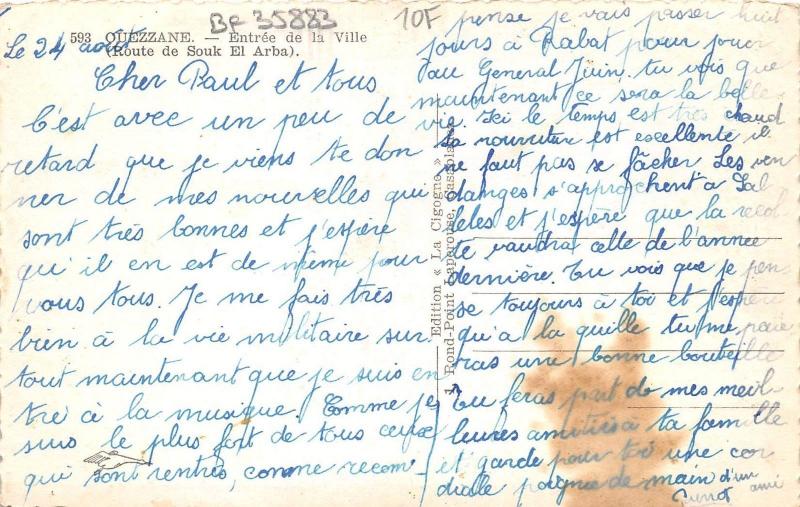 BF 35883
10F
593 OUEZZANE. — Entrée de la Ville
(Route de Souk El Arba).
Le 24 août
Cher Paul et tous
C'est avec un peu de
retard que je viens te don
ner de mes nouvelles qui
sont très bonnes et j'espère
qu'il en est de même pour
vous tous. Je me fais très
bien à la vie militaire sur
tout maintenant que je suis en
tré à la musique. Comme je
suis le plus fort de tous ceux
qui sont rentrés, comme recom-
pense je vais passer huit
jours à Rabat pour jouer
au General Juin. tu vois que
maintenant ce sera la belle
vie. Ici le temps est très chaud
la nourriture est excellente il
ne faut pas se fâcher Les ven
danges s'approchent à Sal
leles et j'espère que la recol
te vaudra celle de l'année
dernière. Tu vois que je pen
se toujours à toi et j'espère
qu'a la quille tu me paie
ras une bonne bouteille
Tu feras part de mes meil
leures amitiés à ta famille
et garde pour toi une cor
dialle poignée de main d'un
ami
Pierrot
Edition « La Cigogne »
Rond-Point Laperouse, Casablanca